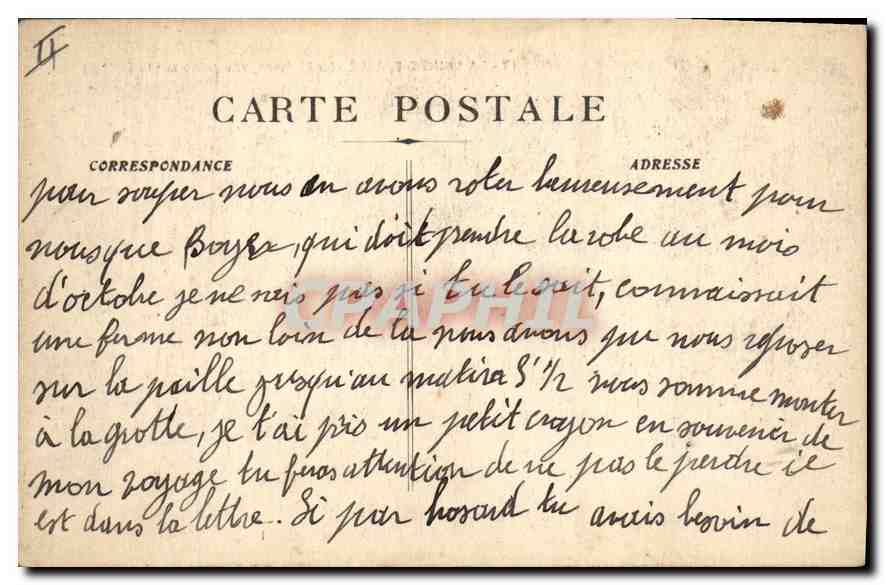 II
CARTE POSTALE
CORRESPONDANCE
ADRESSE
pour souper nous en avons roter heureusement pour
nous que Boyer, qui doit prendre la robe au mois
d'octobre je ne sais pas si tu le sait, connaissait
une ferme non loin de la nous avons pu nous reposer
sur la paille jusqu'au matin a 5 1/2 nous somme monter
à la grotte, je t'ai pris un petit crayon en souvenir de
mon voyage tu feras attention de ne pas le perdre ie
est dans la lettre. Si par hasard tu avais besoin de
CPAPHIL